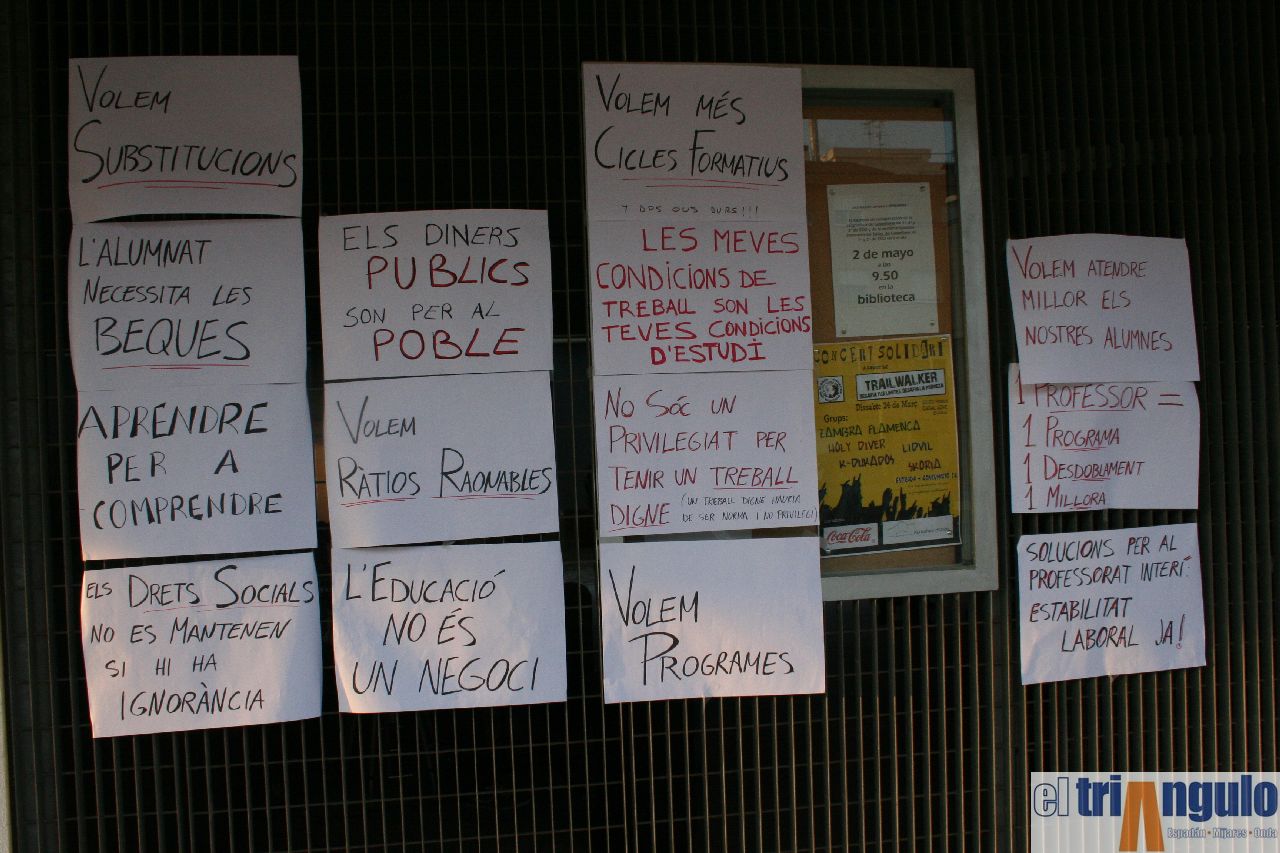 VOLEM
SUBSTITUCIONS
L'ALUMNAT
NECESSITA LES
BEQUES
APRENDRE
PER A
COMPRENDRE
ELS DRETS SOCIALS
NO ES MANTENEN
SI HI HA
IGNORÀNCIA
ELS DINERS
PUBLICS
SON PER AL
POBLE
VOLEM
RÀTIOS RAONABLES
L'EDUCACIÓ
NO ÉS
UN NEGOCI
VOLEM MÉS
CICLES FORMATIUS
Y DOS OUS DURS!!!
LES MEVES
CONDICIONS DE
TREBALL SON LES
TEVES CONDICIONS
D'ESTUDI
NO SÓC UN
PRIVILEGIAT PER
TENIR UN TREBALL
DIGNE (UN TREBALL DIGNE HAURIA
DE SER NORMA I NO PRIVILEGI)
VOLEM
PROGRAMES
2 de mayo
a las
9.50
en la
biblioteca
CONCERT SOLIDARI
TRAILWALKER
Dissabte 24 de Març
Grups:
ZAMBRA FLAMENCA
HOLY DIVER LIDVIL
K-DURADOS SKORIA
Coca-Cola
VOLEM ATENDRE
MILLOR ELS
NOSTRES ALUMNES
1 PROFESSOR =
1 PROGRAMA
1 DESDOBLAMENT
1 MILLORA
SOLUCIONS PER AL
PROFESSORAT INTERÍ:
ESTABILITAT
LABORAL JA!
el triangulo
Espadán • Mijares • Onda